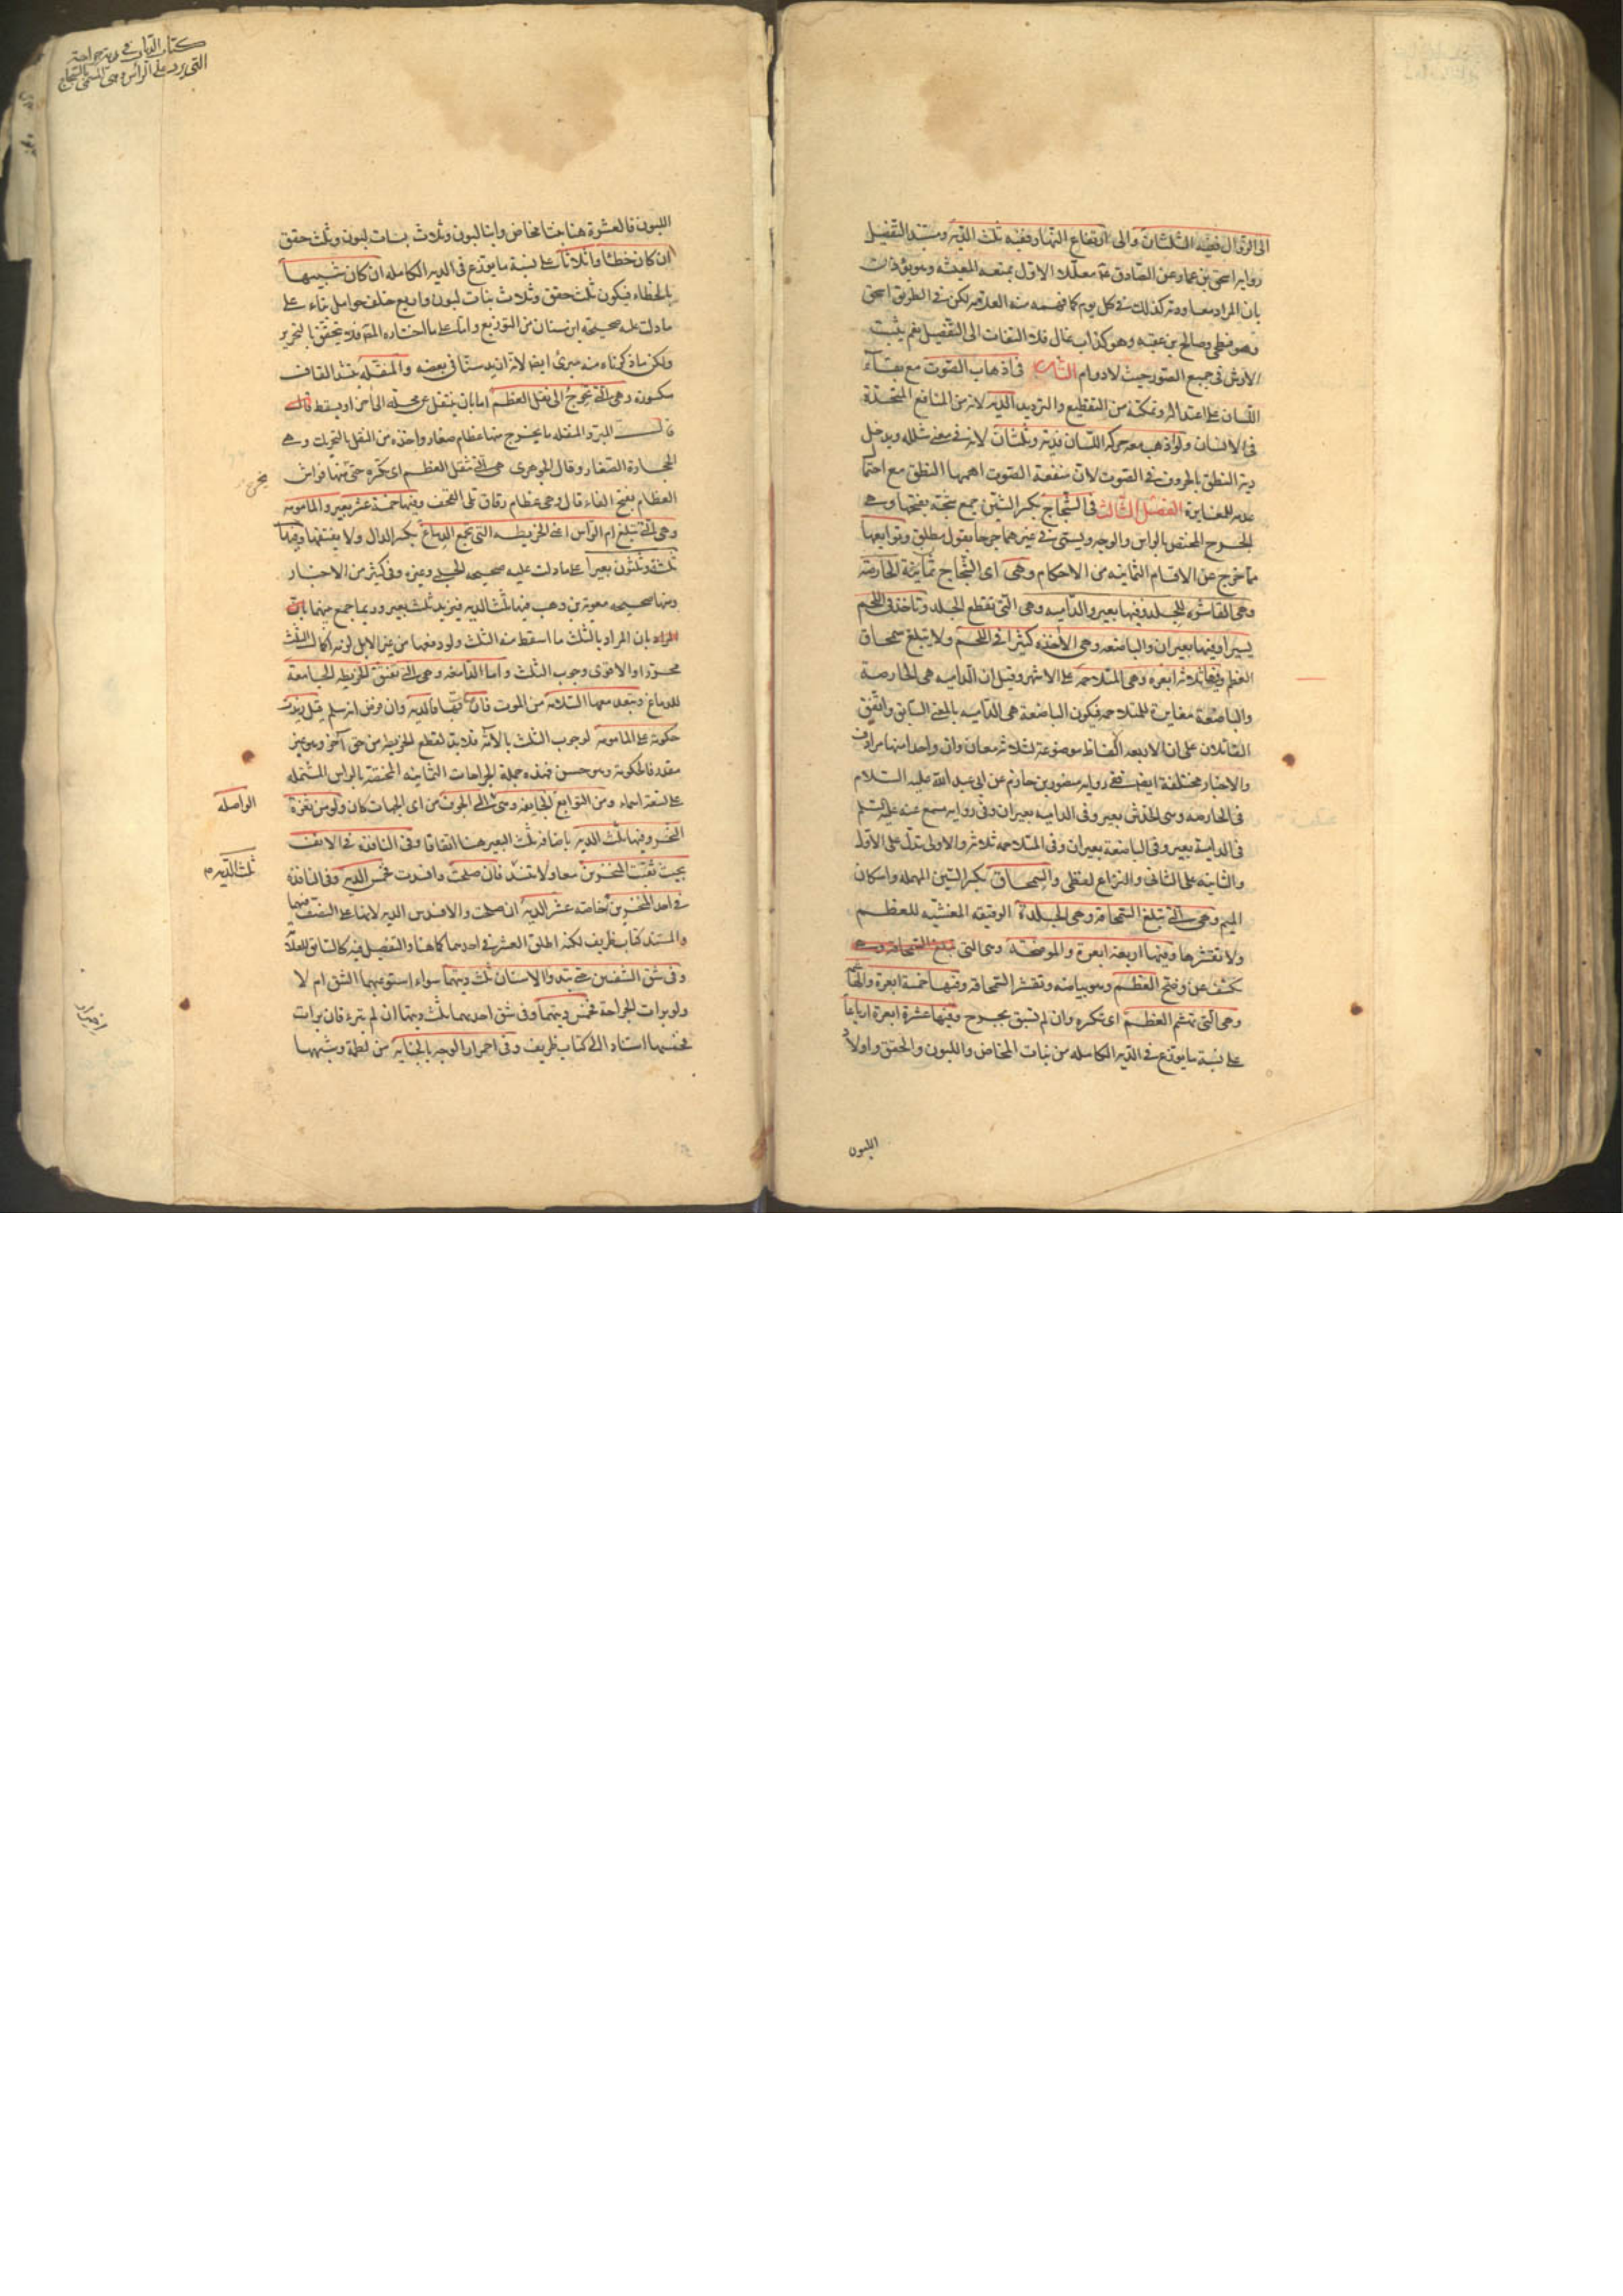 الى الزوال ففيه الثلثان والى ارتفاع النهار ففيه ثلث الدية ومستند التفصيل
رواية اسحق بن عمار عن الصادق ع معللا الاول بمنعه المعيشة وهو يؤذن
بان المراد معاودته كذلك في كل يوم كما فهمه منه العلامة لكن في الطريق اسحق
وهو فطحي وصالح بن عقبة وهو كذاب غال فلا التفات الى التفصيل نعم يثبت
الارش في جميع الصور حيث لا دوام الثامن في اذهاب الصوت مع بقاء
اللسان على اعتداله وتمكنه من التقطيع والترديد الدية لانه من المنافع المتحدة
في الانسان ولو اذهب معه حركة اللسان فدية وثلثان لانه في معنى شلله ويدخل
دية النطق بالحروف في الصوت لان منفعة الصوت اهمها النطق مع احتما
عدمه للمغايرة الفصل الثالث في الشجاج بكسر الشين جمع شجة بفتحها وهي
الجرح المختص بالراس والوجه ويسمى في غيرهما جرحا بقول مطلق وتوابعها
مما خرج عن الاقسام الثمانية من الاحكام وهي اى الشجاج ثمانية الحارصة
وهي القاشرة للجلد وفيها بعير والدامية وهي التي تقطع الجلد وتاخذ في اللحم
يسيرا وفيها بعيران والباضعة وهي الآخذة كثيرا في اللحم ولا تبلغ سمحاق
العظم وفيها ثلاثة ابعرة وهي المتلاحمة على الاشهر وقيل ان الدامية هي الحارصة
والباضعة مغايرة للمتلاحمة فيكون الباضعة هي الدامية بالمعنى السابق واتفق
القائلان على ان الاربعة الفاظ موضوعة لثلاثة معان وان واحدا منها مرادف
والاخبار مختلفة ايضا ففي رواية منصور بن حازم عن ابي عبد الله عليه السلام
في الحارصة وهي الخدش بعير وفي الدامية بعيران وفي رواية مسمع عنه عليه السلم
في الدامية بعير وفي الباضعة بعيران وفي المتلاحمة ثلاثة والاولى تدل على الاول
والثانية على الثاني والنزاع لفظي والسمحاق بكسر السين المهملة واسكان
الميم وهي التي تبلغ السمحاقة وهي الجلدة الرقيقة المغشية للعظم
ولا تقشرها وفيها اربعة ابعرة والموضحة وهي التي تبلغ السمحاقة وهي
تكشف عن وضح العظم وهو بياضه وتقشر السمحاقة وفيها خمسة ابعرة والهاشمة
وهي التي تهشم العظم اى تكسره وان لم تسبق بجرح وفيها عشرة ابعرة ارباعا
على نسبة ما يوزع في الدية الكاملة من بنات المخاض واللبون والحقق واولاد
اللبون
كتاب الديات في دية جراحة
التي يرد على الراس وهي المسمى بالشجاج
اللبون فالعشرة هنا بنتا مخاض وابنا لبون وثلاث بنات لبون وثلث حقق
ان كان خطئا واثلاثا على نسبة ما يوزع في الدية الكاملة ان كان شبيها
بالخطاء فيكون ثلث حقق وثلاث بنات لبون واربع خلف حوامل بناء على
ما دلت عليه صحيحة ابن سنان من التوزيع واما على ما اختاره المصنف فلا يتحقق بالتحرير
ولكن ما ذكرناه منه مبرئ ايضا لانه ازيد سنا في بعضه والمنقلة بتشديد القاف
مكسورة وهي التي تحوج الى نقل العظم اما بان ينتقل عن محله الى آخر او يسقط قال
قال المبرد المنقلة ما يخرج منها عظام صغار واخذه من النقل بالتحريك وهي
الحجارة الصغار وقال الجوهري هي التي تنقل العظم اى تكسره حتى يخرج منها فراش
العظام بفتح الفاء قال وهي عظام رقاق تلى القحف وفيها خمسة عشر بعيرا والمامومة
وهي التي تبلغ ام الراس اعنى الخريطة التي تجمع الدماغ بكسر الدال ولا يفتقها وفيها
ثلثة وثلثون بعيرا على ما دلت عليه صحيحة الحلبي وغيره وفي كثير من الاخبار
ومنها صحيحة معوية بن وهب فيها ثلث الدية فيزيد ثلث بعير وربما جمع بينها بان
المراد بان المراد بالثلث ما اسقط منه الثلث ولو دفعها من غير الابل لزمه اكمال الثلث
محررا والاقوى وجوب الثلث واما الدامغة وهي التي تفتق الخريطة الجامعة
للدماغ وتبعد معها السلامة من الموت فان مات بها فالدية وان فرض انه سلم قيل زيدت
حكومة على المامومة لوجوب الثلث بالامة فلا بد لقطع الخريطة من حق آخر وهو غير
مقدر فالحكومة وهو حسن فهذه جملة الجراحات الثمانية المختصة بالراس المشتملة
على تسعة اسماء ومن التوابع الجايفة وهي الواصلة الى الجوف من اى الجهات كان ولو من ثغرة
النحر وفيها ثلث الدية باضافة ثلث البعير هنا اتفاقا وفي النافذة في الانف
بحيث تثقب المنخرين معا ولا تنسد ثلث الدية فان صلحت وانسدت فخمس الدية وفي النافذة
في احد المنخرين خاصة عشر الدية ان صلحت والا فسدس الدية لانها على النصف فيهما
والمستند كتاب ظريف لكنه اطلق العشر في احدهما كما هنا والتفصيل فيه كالسابق للعلامة
وفي شق الشفتين حتى تبدو الاسنان ثلث ديتهما سواء استوعبهما الشق ام لا
ولو برات الجراحة فخمس ديتهما وفي شق احدهما ثلث ديتها ان لم يبرء فان برات
فخمسها استنادا الى كتاب ظريف وفي احمرار الوجه بالجناية من لطمة وشبهها
يخرج
الواصلة
ثلث الدية م
احمرار